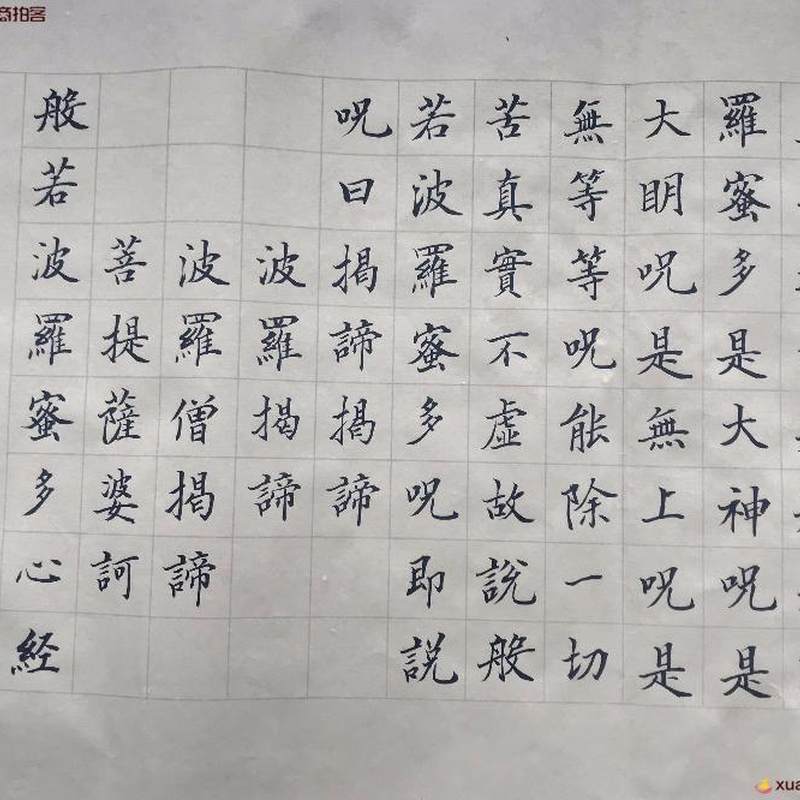 羅蜜多是大神呪是
大明呪是無上呪是
無等等呪能除一切
苦真實不虛故說般
若波羅蜜多呪即說
呪曰揭諦揭諦
波羅揭諦
波羅僧揭諦
菩提薩婆訶
般若波羅蜜多心経
商拍客
xua